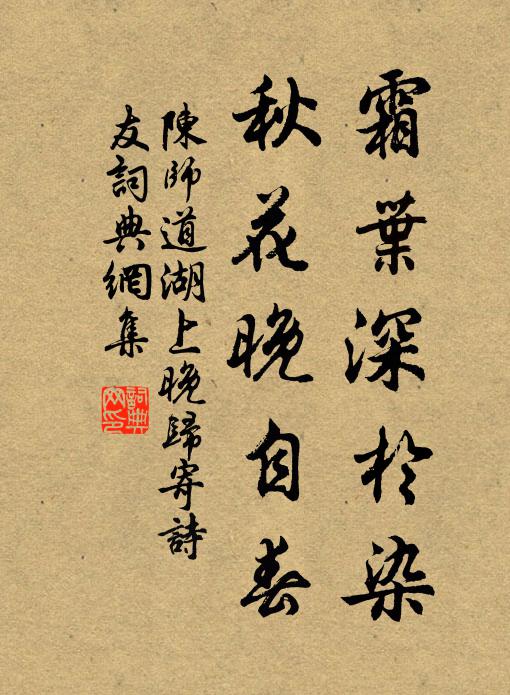 霜葉深於染
秋花晚自春
陳師道湖上晚歸寄詩
友詞典網集
詞典
网印